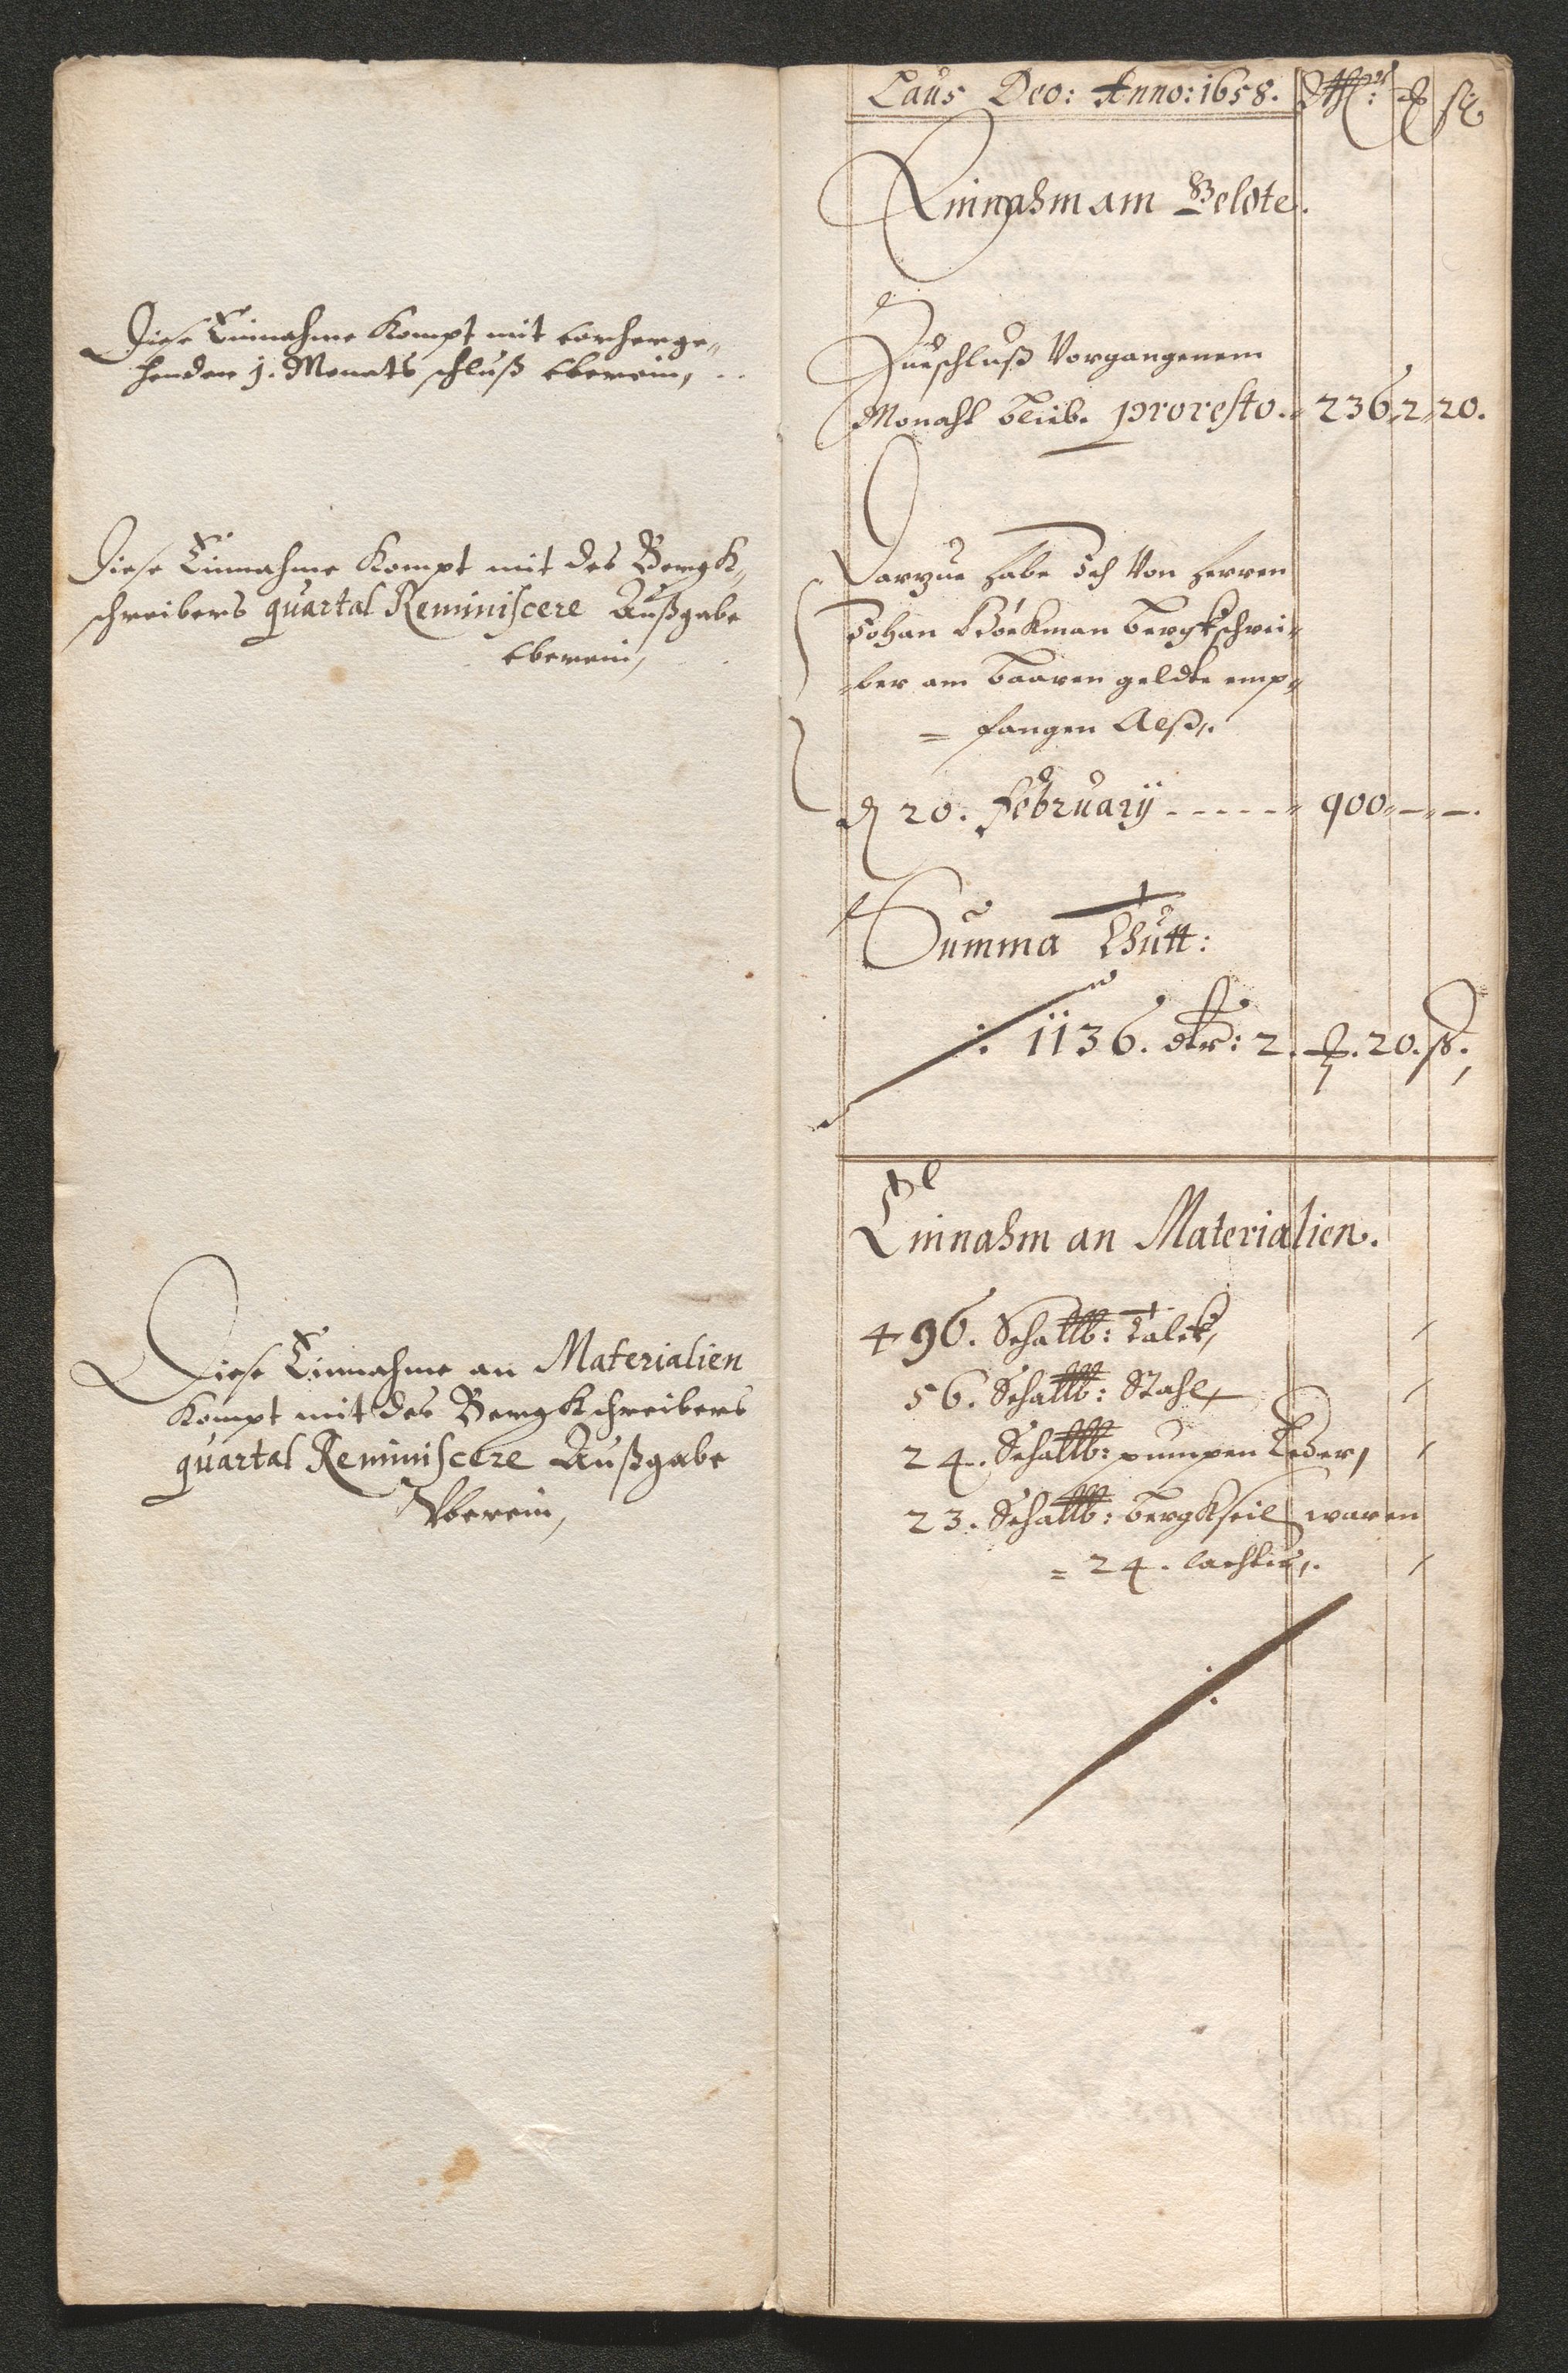 Diese Einnahme Kompt mit vorherge-
henden 1. Monats schluß überein,
Diese Einnahme Kompt mit des Bergk-
schreibers quartal Reminiscere Außgabe
überein,
Diese Einnahme an Materialien
Kompt mit des Bergkschreibers
quartal Reminiscere Außgabe
Überein,
Laus Deo: Anno: 1658.
Einnahm am Geldte.
Zueschluß Vorgangenem
Monaht blieb. pro resto. 236 2 20.
Darzue habe Ich Von Herren
Johan Böekman bergkschrei-
-ber am baaren geldte emp-
= fangen Alß,.
d 20. February - - - - - 900 — —.
Summa Thutt:
1136. dlr: 2. 20. ß.
Einnahm an Materialien.
496. Schallb: Talck,
56. Schallb: Stahl,
24. Schallb: pumpen Leder,
23. Schallb: bergkseil waren
= 24. lachter,.